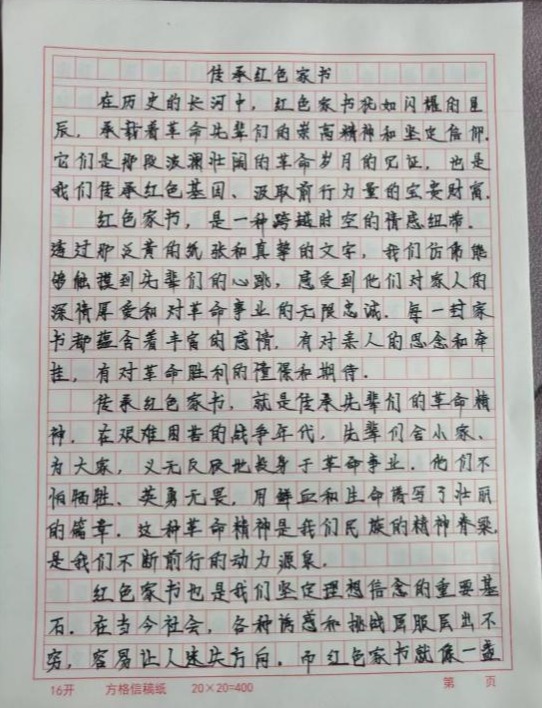 传承红色家书
在历史的长河中，红色家书犹如闪耀的星
辰，承载着革命先辈们的崇高精神和坚定信仰。
它们是那段波澜壮阔的革命岁月的见证，也是
我们传承红色基因、汲取前行力量的宝贵财富。
红色家书，是一种跨越时空的情感纽带。
透过那泛黄的纸张和真挚的文字，我们仿佛能
够触摸到先辈们的心跳，感受到他们对家人的
深情厚爱和对革命事业的无限忠诚。每一封家
书都蕴含着丰富的感情，有对亲人的思念和牵
挂，有对革命胜利的憧憬和期待。
传承红色家书，就是传承先辈们的革命精
神。在艰难困苦的战争年代，先辈们舍小家、
为大家，义无反顾地投身于革命事业。他们不
怕牺牲、英勇无畏，用鲜血和生命谱写了壮丽
的篇章。这种革命精神是我们民族的精神脊梁，
是我们不断前行的动力源泉。
红色家书也是我们坚定理想信念的重要基
石。在当今社会，各种诱惑和挑战层出不
穷，容易让人迷失方向。而红色家书就像一盏
16开 方格信稿纸 20×20=400 第 页